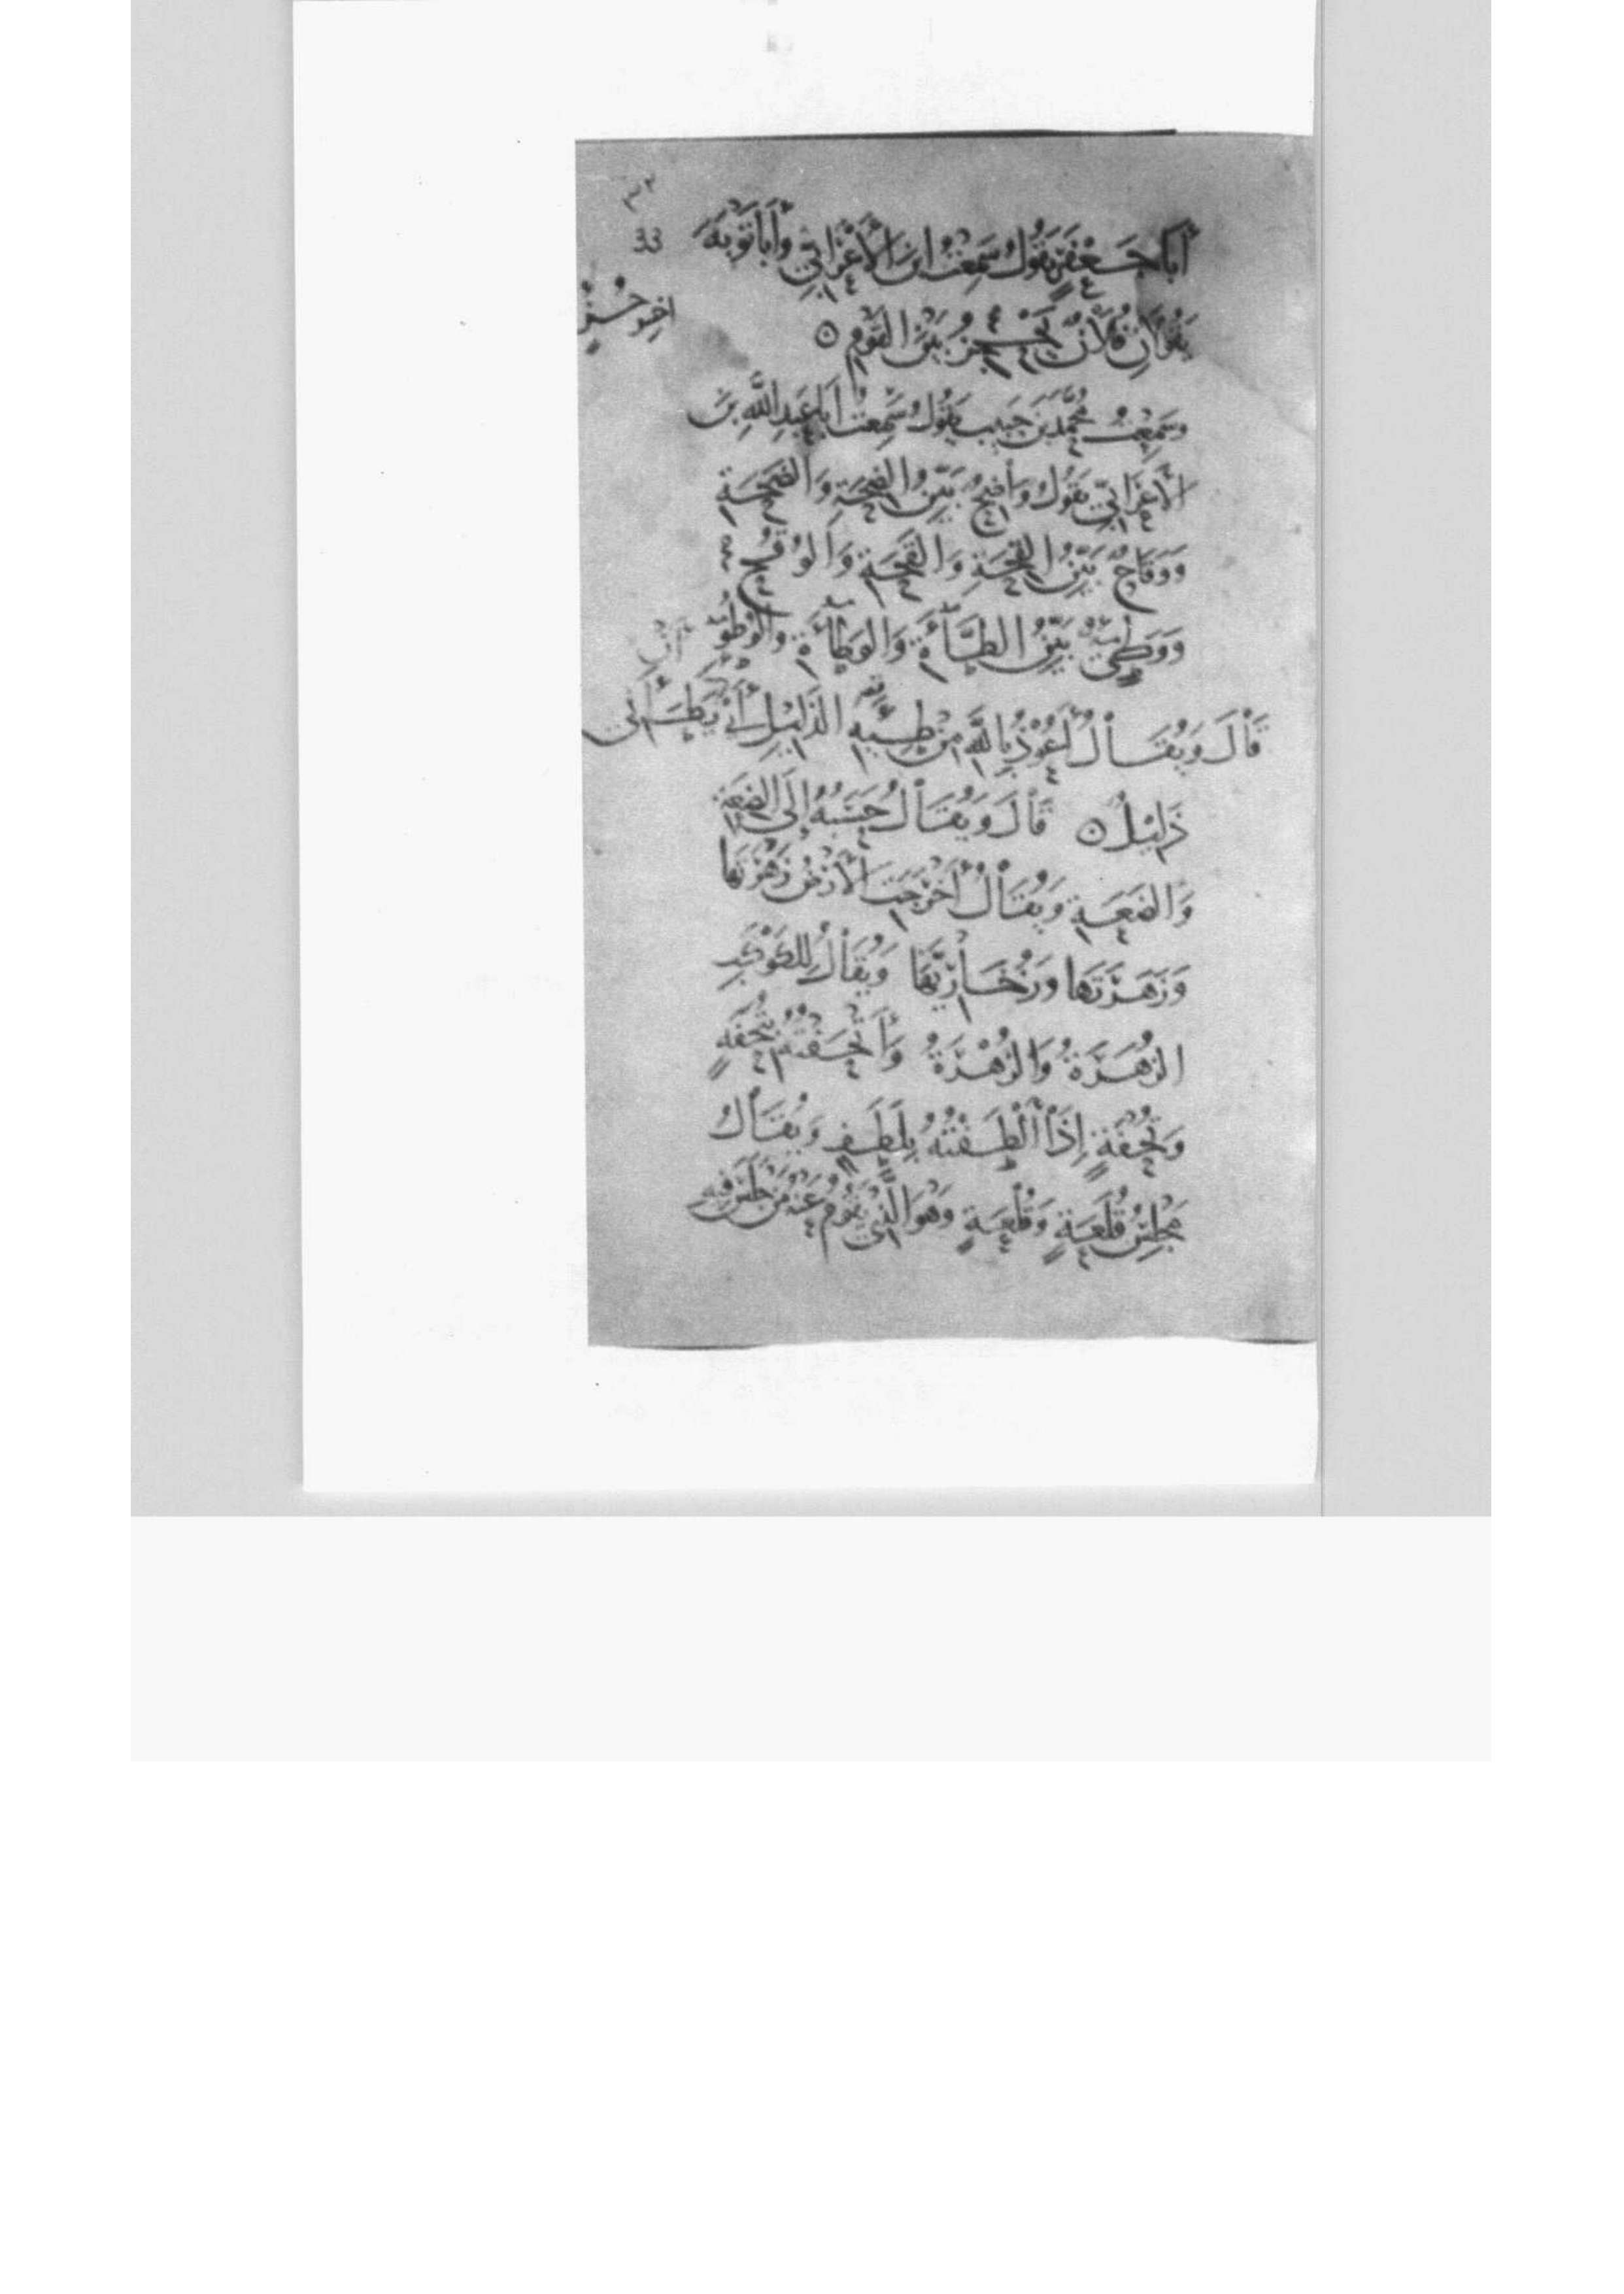 ٣٣
33
أَبَا جَعْفَرٍ يَقُولُ سَمِعْتُ ابْنَ الْأَعْرَابِيِّ وَأَبَا تَوْبَةَ
يَقُولَانِ فُلَانٌ يَحْجُزُ بَيْنَ الْقَوْمِ ٥
وَسَمِعْتُ مُحَمَّدَ بْنَ حَبِيبَ يَقُولُ سَمِعْتُ أَبَا عَبْدِ اللَّهِ بْنَ
الْأَعْرَابِيِّ يَقُولُ وَاضِحٌ بَيِّنُ الضِّحَةِ وَالضَّحَةِ
وَوَقَاحٌ بَيِّنُ الْقِحَةِ وَالْقَحَةِ وَالْوُقُحِ
وَوَطِيءٌ بَيِّنُ الطَّأَةِ وَالْوَطَأَةِ وَالْوُطُوءِ
قَالَ وَيُقَالُ أَعُوذُ بِاللَّهِ مِنْ طِئَةِ الذَّلِيلِ أَنْ يَطَأَنِي
ذَلِيلٌ ٥ قَالَ وَيُقَالُ حَسَبُهُ إِلَى الضِّعَةِ
وَالضَّعَةِ وَيُقَالُ أَخْرَجَتِ الْأَرْضُ زَهْرَتَهَا
وَزَهَرَتَهَا وَزُخَارِيَّهَا وَيُقَالُ لِلْكَوْكَبِ
الزُّهَرَةُ وَالزُّهْرَةُ وَأَتْحَفْتُهُ بِتُحَفَةٍ
وَتُحْفَةٍ إِذَا أَلْطَفْتُهُ بِلَطَفٍ وَيُقَالُ
مَجْلِسُ قُلَعَةٍ وَقُلْعَةٍ وَهُوَ الَّذِي يَقُومُ عَنْهُ مَنْ جَلَسَ فِيهِ